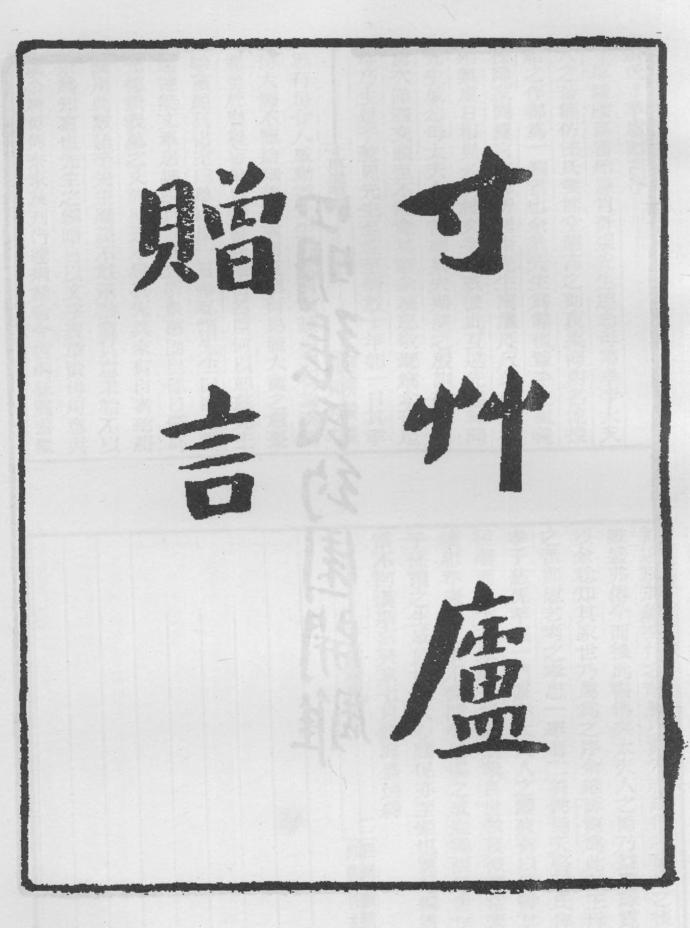 寸艸廬
贈言